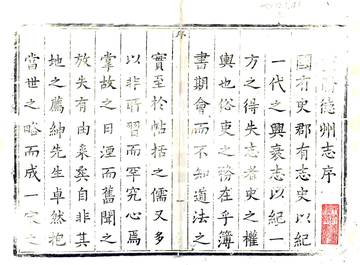 德州志序
國有史郡有志史以紀
一代之興衰志以紀一
方之得失志者史之權
輿也俗吏之務在乎簿
書期會而不知道法之
實至於帖括之儒又多
以非所習而罕究心焉
掌故之日湮而舊聞之
放失有由來矣自非其
地之薦紳先生卓然抱
當世之略而成一定之
序